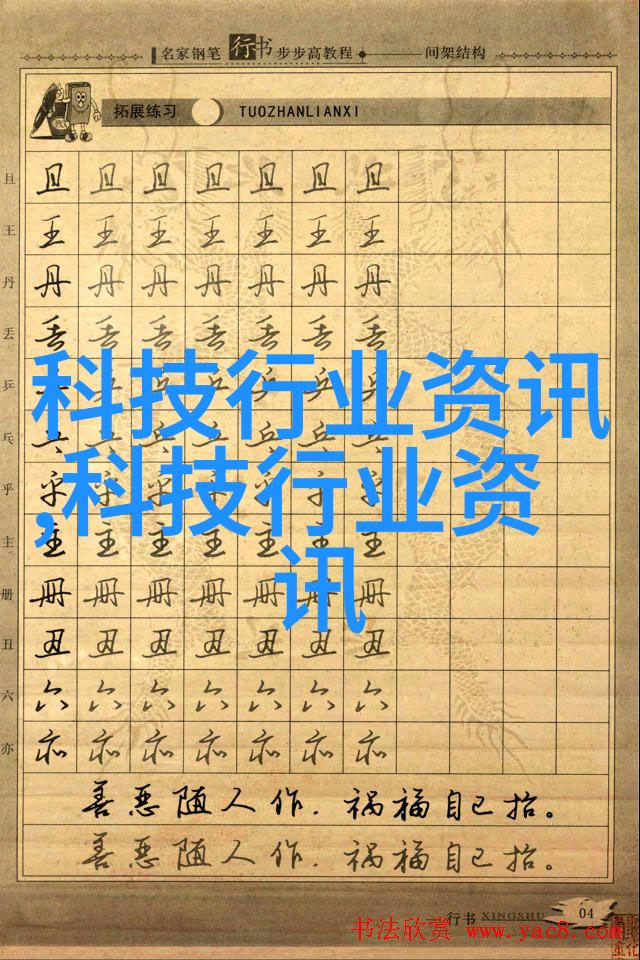 名家钢笔行书步步高教程 间架结构
拓展练习 TUOZHANLIANXI
且 且 且 且 且 且 且 且
王 王 王 王 王 王 王 王
丹 丹 丹 丹 丹 丹 丹 丹
丢 丢 丢 丢 丢 丢 丢 丢
科技行业资讯
乒 乒 乒 乒 乒 乒
乓 乓 乓 乓 乓 乓
,科技行业资
乎 乎 乎 乎 乎 乎 乎 乎
主 主 主 主 主 主 主 主
讯
册 册 册 册 册 册 册 册
丑 丑 丑 丑 丑 丑 丑 丑
六 六 六 六 六 六 六 六
亦 亦 亦 亦 亦 亦 亦 亦
善恶随人作，祸福自己招。
善恶随人作，祸福自己招。
行书 XINGSHU 04
书法欣赏 www.yac8.com